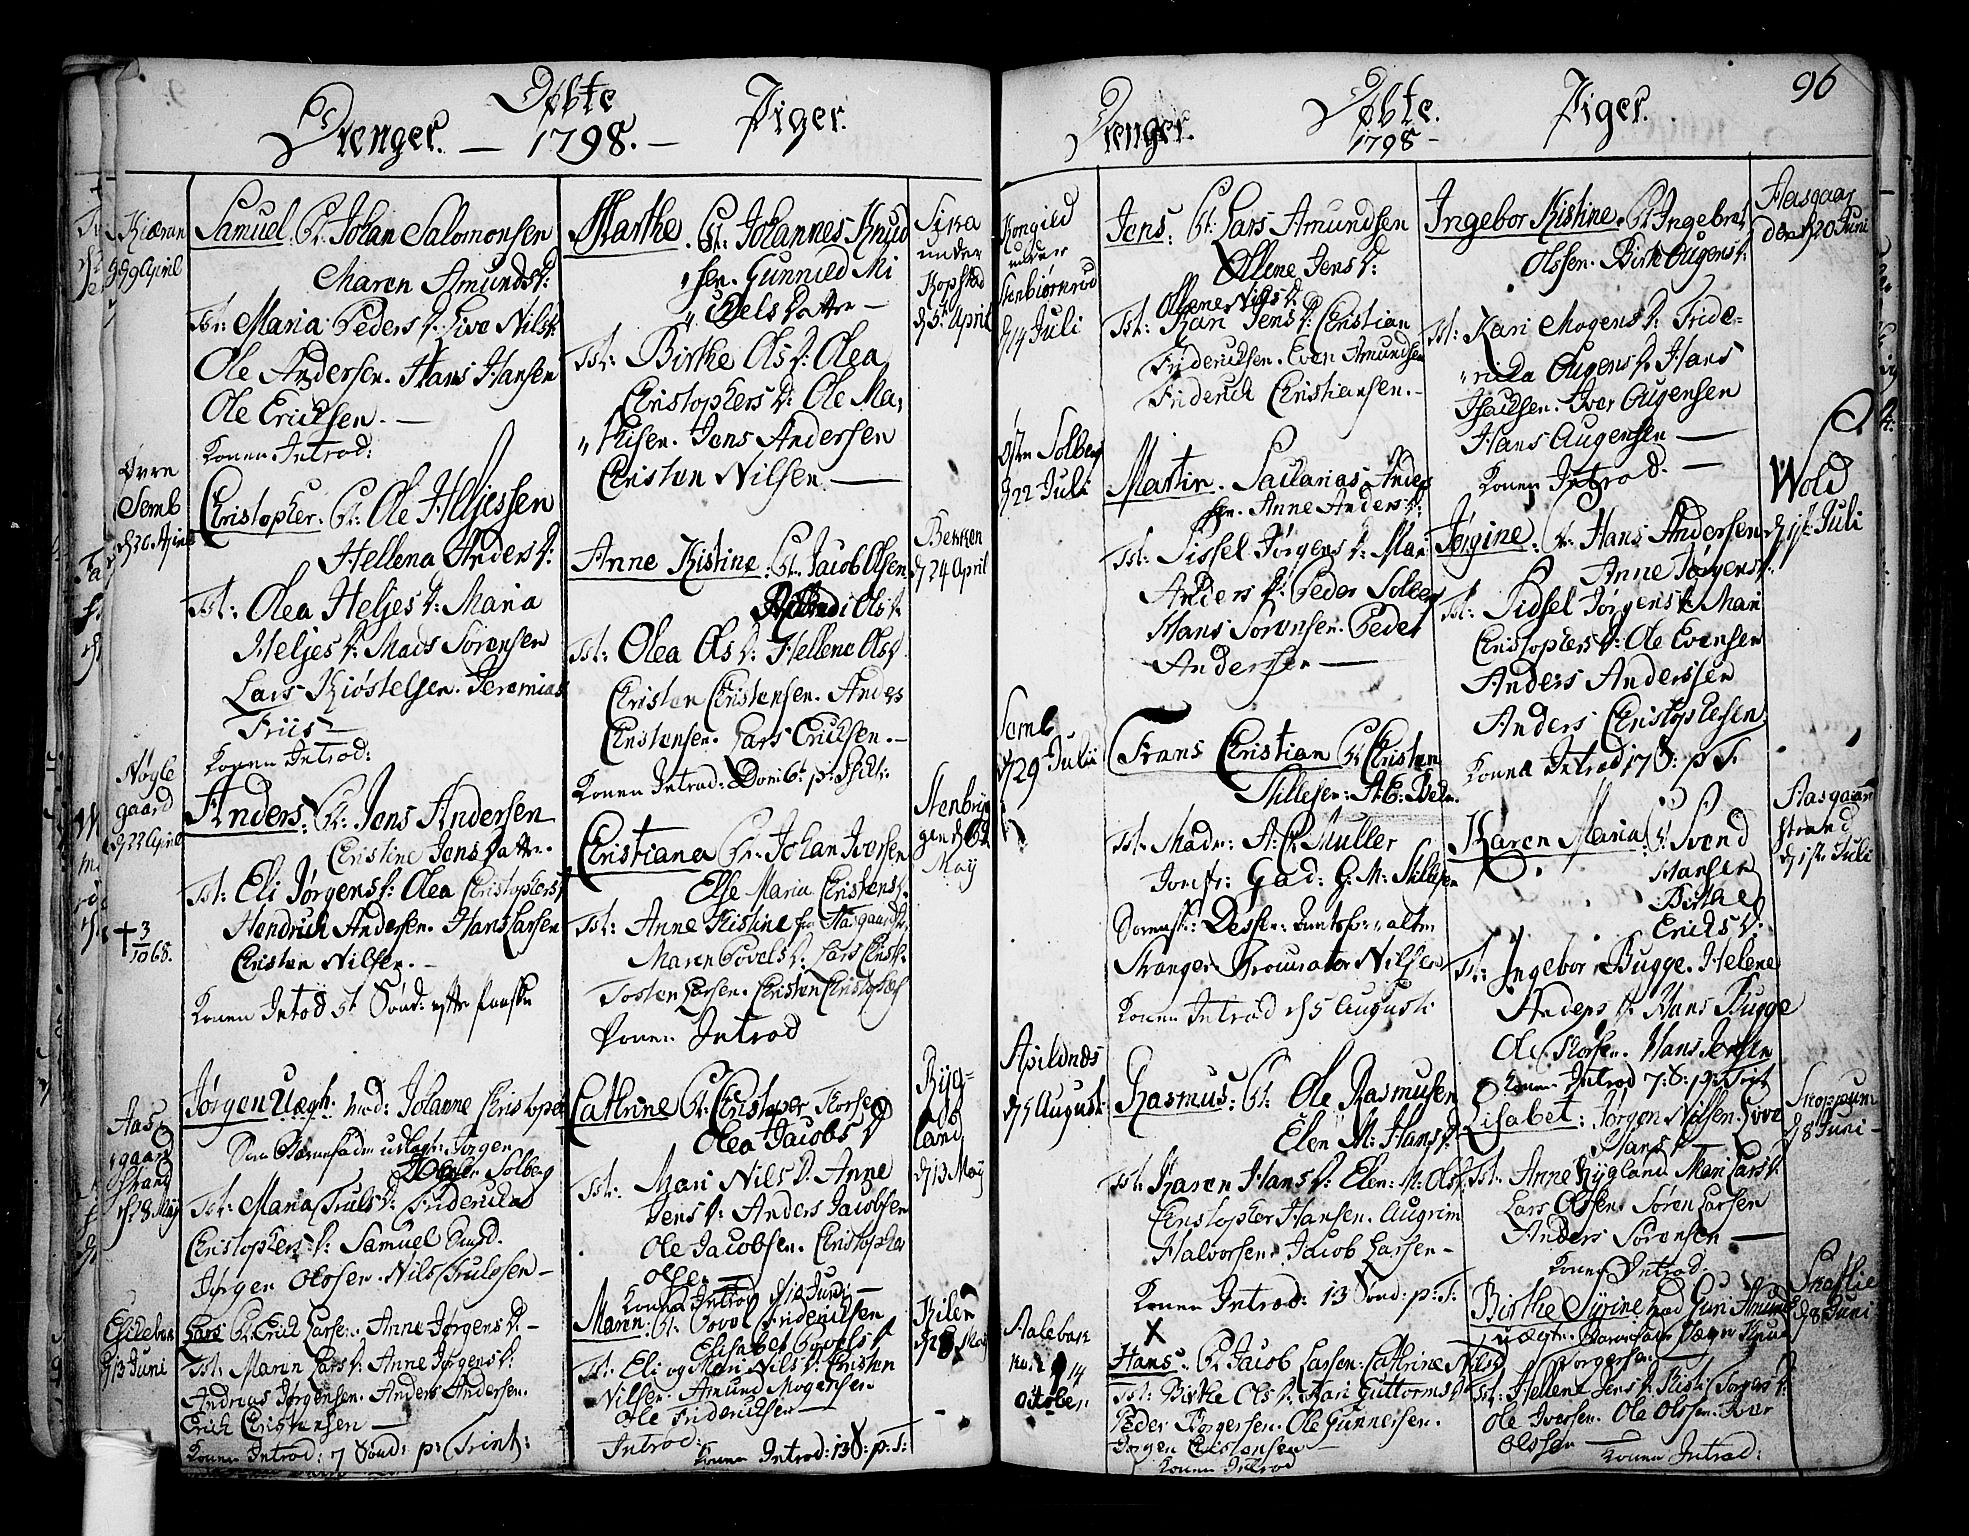 Døbte
Drenger. — 1798. — Piger.
Kiæran
d 9 April
Samuel. Et. Johan Salomonsen
Maren Amunds D:
Tst: Maria Peders D: Siva Nils D:
Ole Andersen. Hans Hansen
Ole Ericksen. —
Konen Introd:
Øvre
Semb
Christopher. Et. Ole Heljessen
Hellena Anders D:
Tst: Olea Heljes D: Maria
Heljes D: Mads Sørensen
Lars Kiøstelsen. Jeremias
Friis —
Konen Introd:
Nøyle
gaard
d 22 April
Anders. Et. Jens Andersen
Christine Jens Datter.
Tst: Eli Jørgens D: Olea Christophers D
Hendrich Andersen. Hans Larsen
Christen Nilsen. —
Konen Introd 5t Sønd: efter Paaske
Aas
gaard
strand
d 8 May
Jørgen Uægt. ved: Johanne Christopher
Jørgen
Solberg
Tst: Maria Truls D: Friderica
Christophers D: Samuel
Jørgen Olssen. Nils Trulssen —
d 13 Juni
Lars Et. Erick Larsen. Anne Jørgens D. —
Tst: Maren Lars D: Anne Jørgens D:
Andreas Jørgensen. Anders Andersen.
Erick Christensen —
Konen Introd: 7 Sønd: p: Trint:
Marthe. Et. Johannes Knud
sen. Gunnild Mi
chels Datter —
Tst: Birthe Ols D: Olea
Christophers D: Ole Ma,
thisen. Jens Andersen
Christen Nilsen. —
Sirra
under
Kopstad
d 5t April
Anne Kistine. Et. Jacob Olsen
Ols D.
Tst: Olea Ols D: Hellene Ols D.
Christen Christensen. Anders
Christensen. Lars Ericksen. —
Konen Introd:
Bekken
d 24 April
Christiana Et. Johan Iversen
Else Maria Christens D.
Tst: Anne Kistine fra Aasgaardst:
Maren Povels D. Lars Christ:
Tosten Larsen. Christen Christophers
Konen Introd
Stenbryg
gen
May
Cathrine Et. Christopher Thorsen
Olea Jacobs D
Tst: Mari Nils D. Anne
Jens D: Anders Jacobsen
Ole Jacobsen. Christopher
Olsen —
Konen Introd
Byg-
land
d 13 May
Maren. Et. Povel Friderichsen
Elisabet Povels D
Tst: Eli og Mari Nils D: Christen
Nilsen. Amund Mogensen
Ole Friderichsen —
Introd:
Konen Introd: 13 S: p: T:
Kilen
d 28 May
96
Døbte.
Drenger. 1798 — Piger.
Kongild
under
Stenbiørnrød
d 14 Juli
Jens: Et: Lars Amundsen
Ollene Jens D:
Ollene Nils D:
Tst: Kari Jens D: Christian
Friderichsen. Even Amundsen
Friderich Christiansen. —
Østre Solberg
d 22 Juli
Martin. Sacharias Anders
sen. Anne Anders D:
Tst: Sissel Jørgens D: Mari
Anders D: Peder Solberg
Hans Sørensen. Peder
Andersen —
Semb
d 29 Julii
Frans Christian Et Christen
Stillesen:
Tst: Madm: A. C. Müller
Jomfr: Gad: G: M: Stillesen
Stranger Procurator Nilsen
Konen Introd d 5 Augusti
d 5 August:
Rasmus: Et: Ole Rasmusen
Elen M: Hans D:
Tst: Karen Hans D: Elen: M: Ols D:
Christopher Hansen. Augrim
Halvorsen. Jacob Larsen —
Konen Introd: 13 Sønd: p: T:
14
October
Hans: Et Jacob Larsen: Cathrine Nils D
Tst: Birthe Ols D: Kari Guttorms D:
Peder Børgersen. Ole Gunnersen.
Jørgen Christensen —
Konen Introd
Ingebor Kistine. Et Ingebret
Olssen. Birte Augens D:
Tst: Kari Mogens D: Fride-
rica Augens D: Hans
Isacksen. Iver Augensen
Hans Augensen —
Konen Introd. —
Aasgaar
den d 20 Juni
Jørgine. Et. Hans Andersen
Anne Jørgens D.
Tst: Sidsel Jørgens D: Mari
Christophers D: Ole Evensen
Anders Anderssen
Anders Christophersen
Konen Introd 17 S: p T.
Wold
d 1st: Juli
Karen Maria Et Svend
Hansen
Birthe
Ericks D:
Tst: Ingebor Bugge. Helene
Anders D. Hans Bugge
Ole Thorsen. Hans Jensen
Konen Introd 7: S: p: Trint
Aasgaar
strand
d 1st: Juli
Lisabet: Jørgen Nilsen. Siva
Hans D
Tst: Anne Rygland Mari Lars D:
Lars Olssen Søren Larsen
Anders Sørensen —
Konen Introd:
Snoppum
d 8 Juni
Birthe Syrine ved Guri Amunds
uægte. Barnefader
Børgersen
Tst: Hellene Jens D: Kisti Børgers D:
Ole Iversen. Ole Olssen. Iver
Olssen —
Konen Introd:
d 8 Juni